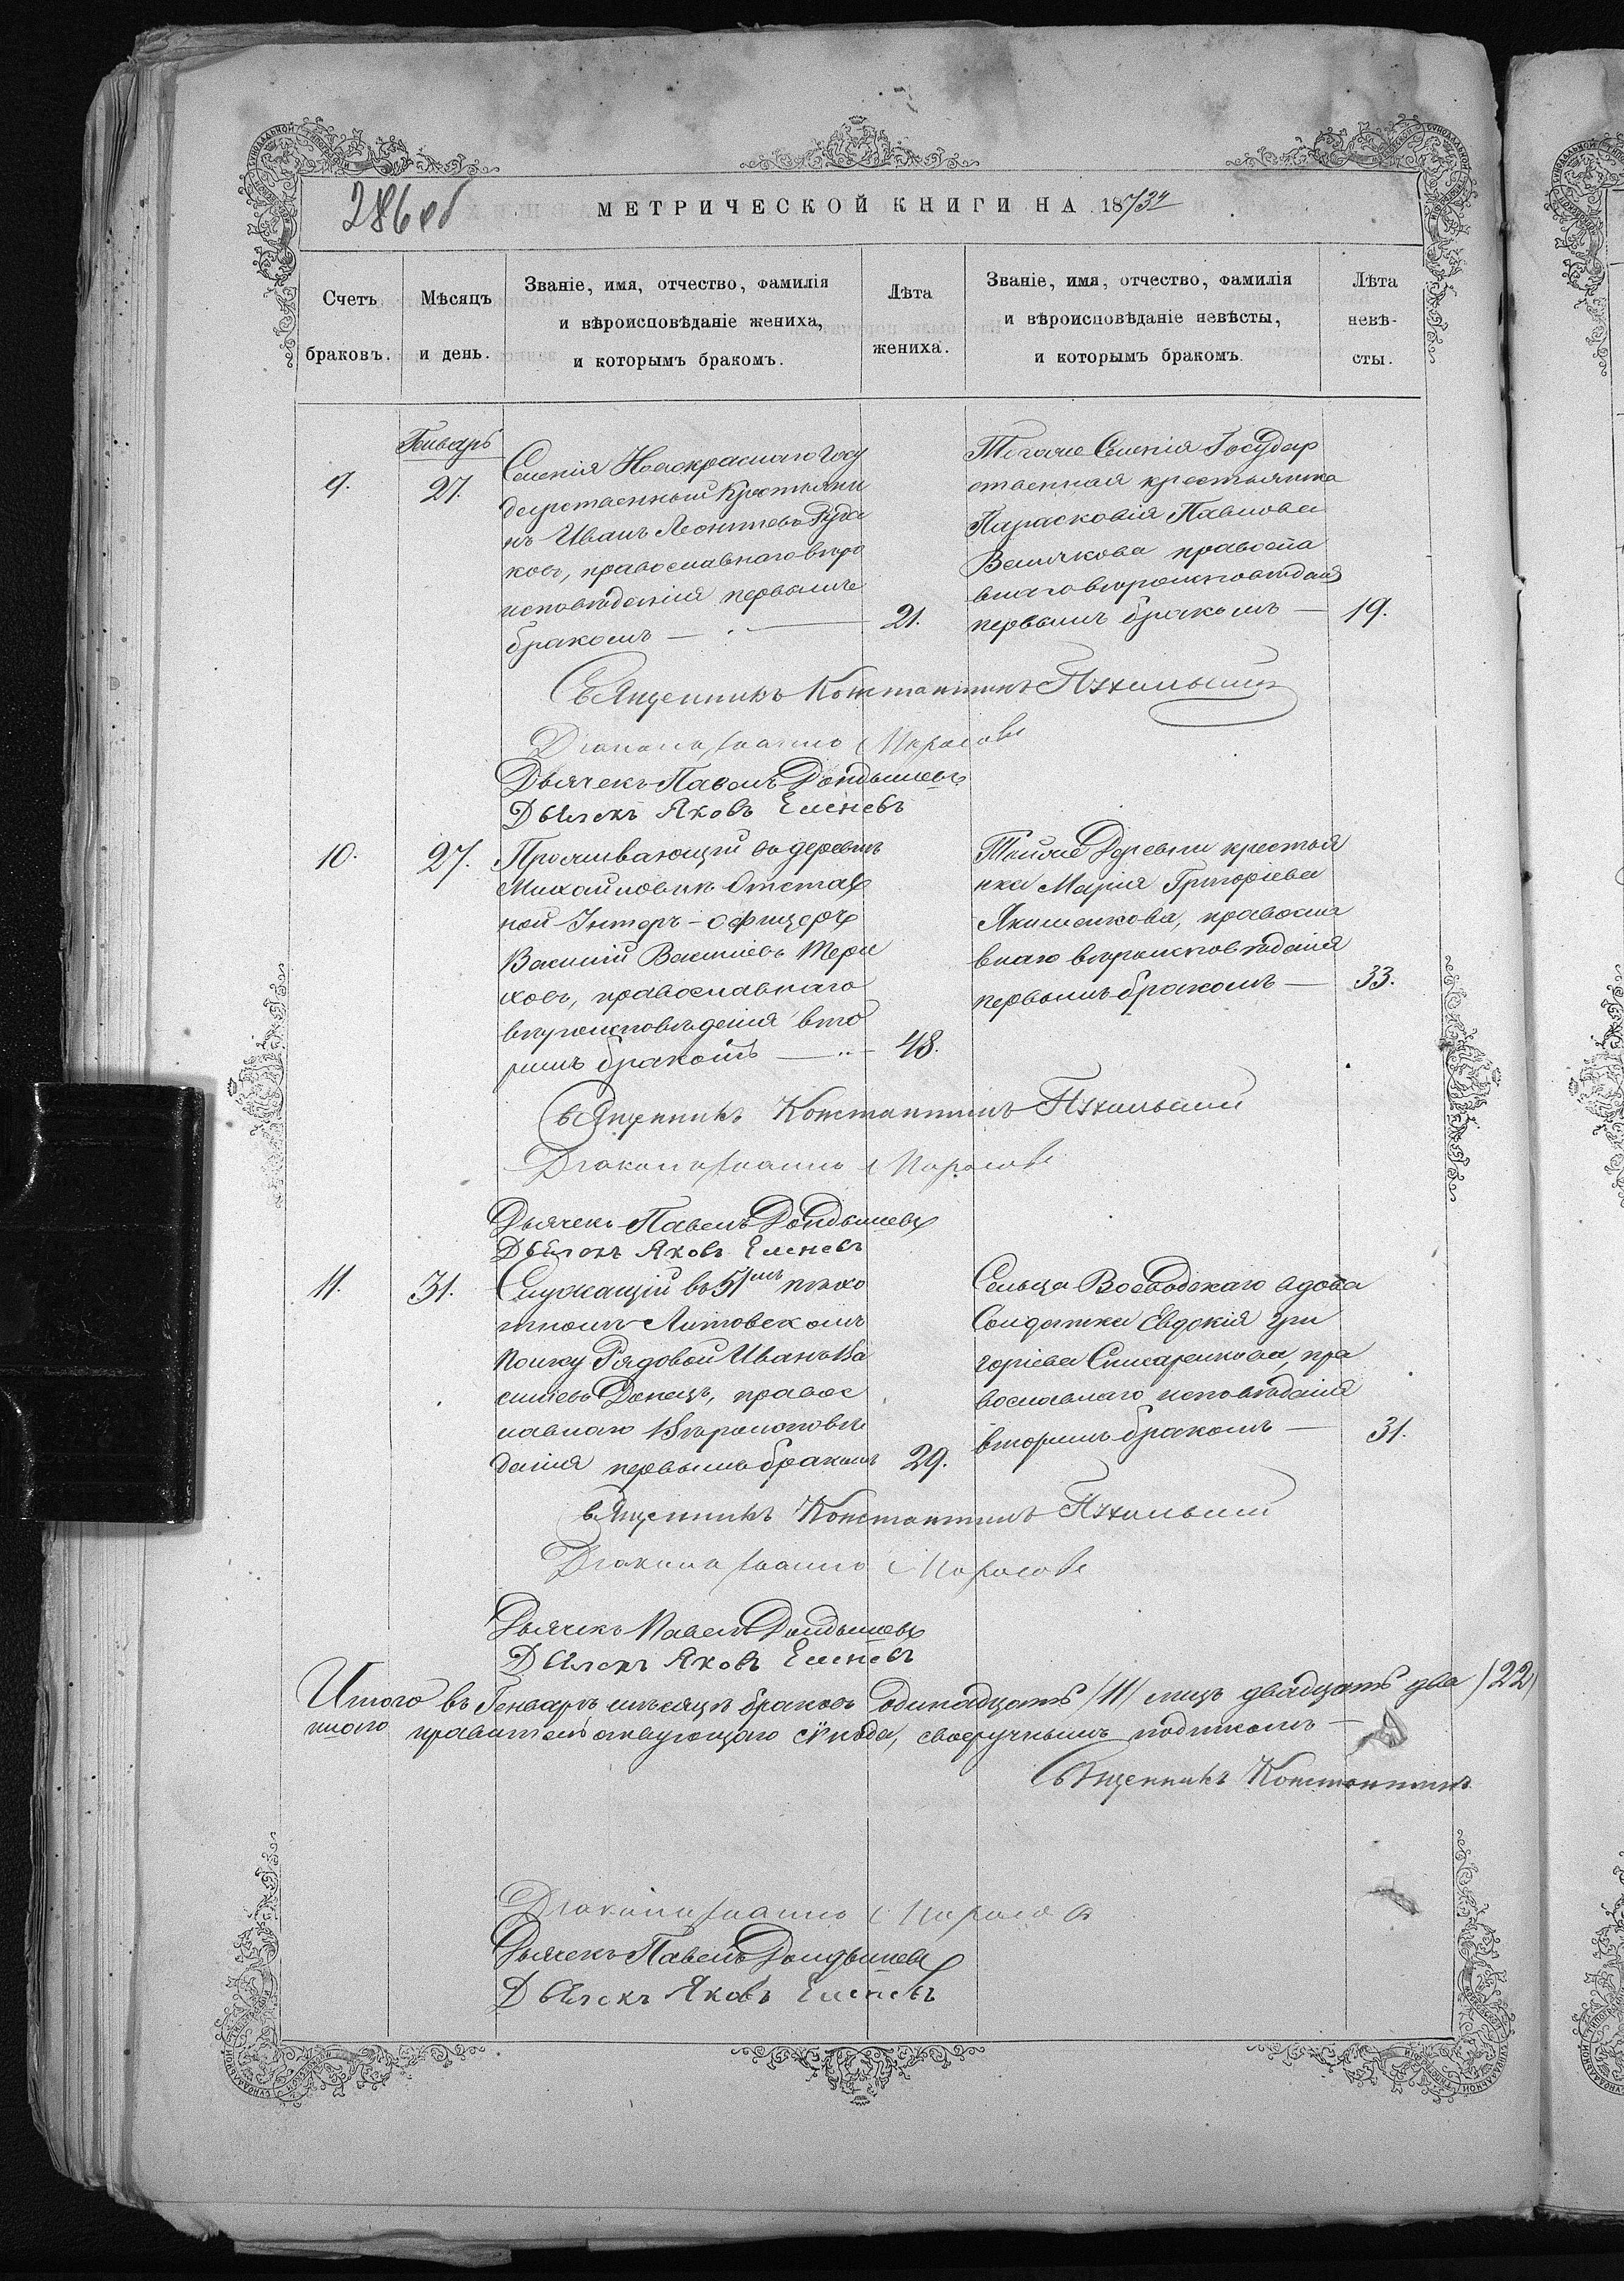 286 об
МЕТРИЧЕСКОЙ КНИГИ НА 1873й
Счетъ браковъ.
Мѣсяцъ и день.
Званіе, имя, отчество, фамилія
и вѣроисповѣданіе жениха,
и которымъ бракомъ.
Лѣта
жениха.
Званіе, имя, отчество, фамилія
и вѣроисповѣданіе невѣсты,
и которымъ бракомъ.
Лѣта
невѣ-
сты.
Генварь
9.
27.
Селенія Новокраснаго Госу
дарственный Крестьяни
нъ Иванъ Леонтіевъ
ковъ, православнаго вѣро
исповѣданія первымъ
бракомъ —
21.
Тогоже Селенія Государ
ственная крестьянка
Парасковія Павлова
Величкова правосла
внаго вѣроисповѣданія
первымъ бракомъ —
19.
Священникъ Константинъ
Діаконъ Іоаннъ
Дьячекъ Павелъ Дондышевъ
Дьячекъ Яковъ Еленевъ
10.
27.
Проживающій въ деревнѣ
Михайловкѣ Отстав
ной Унтеръ-офицеръ
Василій Васильевъ Тере
ховъ, православнаго
вѣроисповѣденія вто
рымъ бракомъ —
48.
Тойже Деревни крестья
нка Марія Григоріева
Якименкова, правосла
внаго вѣроисповѣданія
первымъ бракомъ —
33.
Священникъ Константинъ
Діаконъ Іоаннъ
Дьячекъ Павелъ Дондышевъ
Дьячекъ Яковъ Еленевъ
11.
31.
Служащій въ 51мъ пѣхо
тномъ Литовскомъ
полку Рядовой Иванъ Ва
сильевъ Донецъ, правос
лавнаго Вѣроисповѣ
данія первымъ бракомъ
29.
Сельца Воеводскаго вдова
Солдатка Евдокія Гри
горіева Слюсаренкова, пра
вославнаго исповѣданія
вторымъ бракомъ —
31.
Священникъ Константинъ
Діаконъ Іоаннъ
Дьячекъ Павелъ Дондышевъ
Дьячекъ Яковъ Еленевъ
Итого въ Генварѣ мѣсяцѣ браковъ одинадцать /11/ лицъ двадцать два /22/
правительствующаго сѵнода, своеручнымъ подписомъ —
Священникъ Константинъ
Діаконъ Іоаннъ
Дьячекъ Павелъ Дондышевъ
Дьячекъ Яковъ Еленевъ